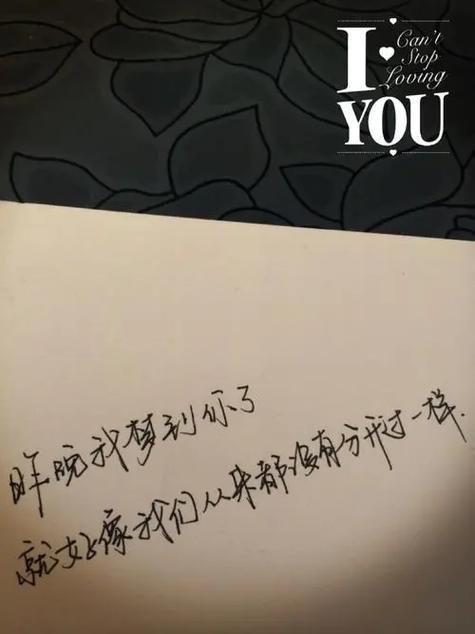 I Can't
Stop
Loving
YOU
昨晚我梦到你了
就好像我们从来都没有分开过一样.